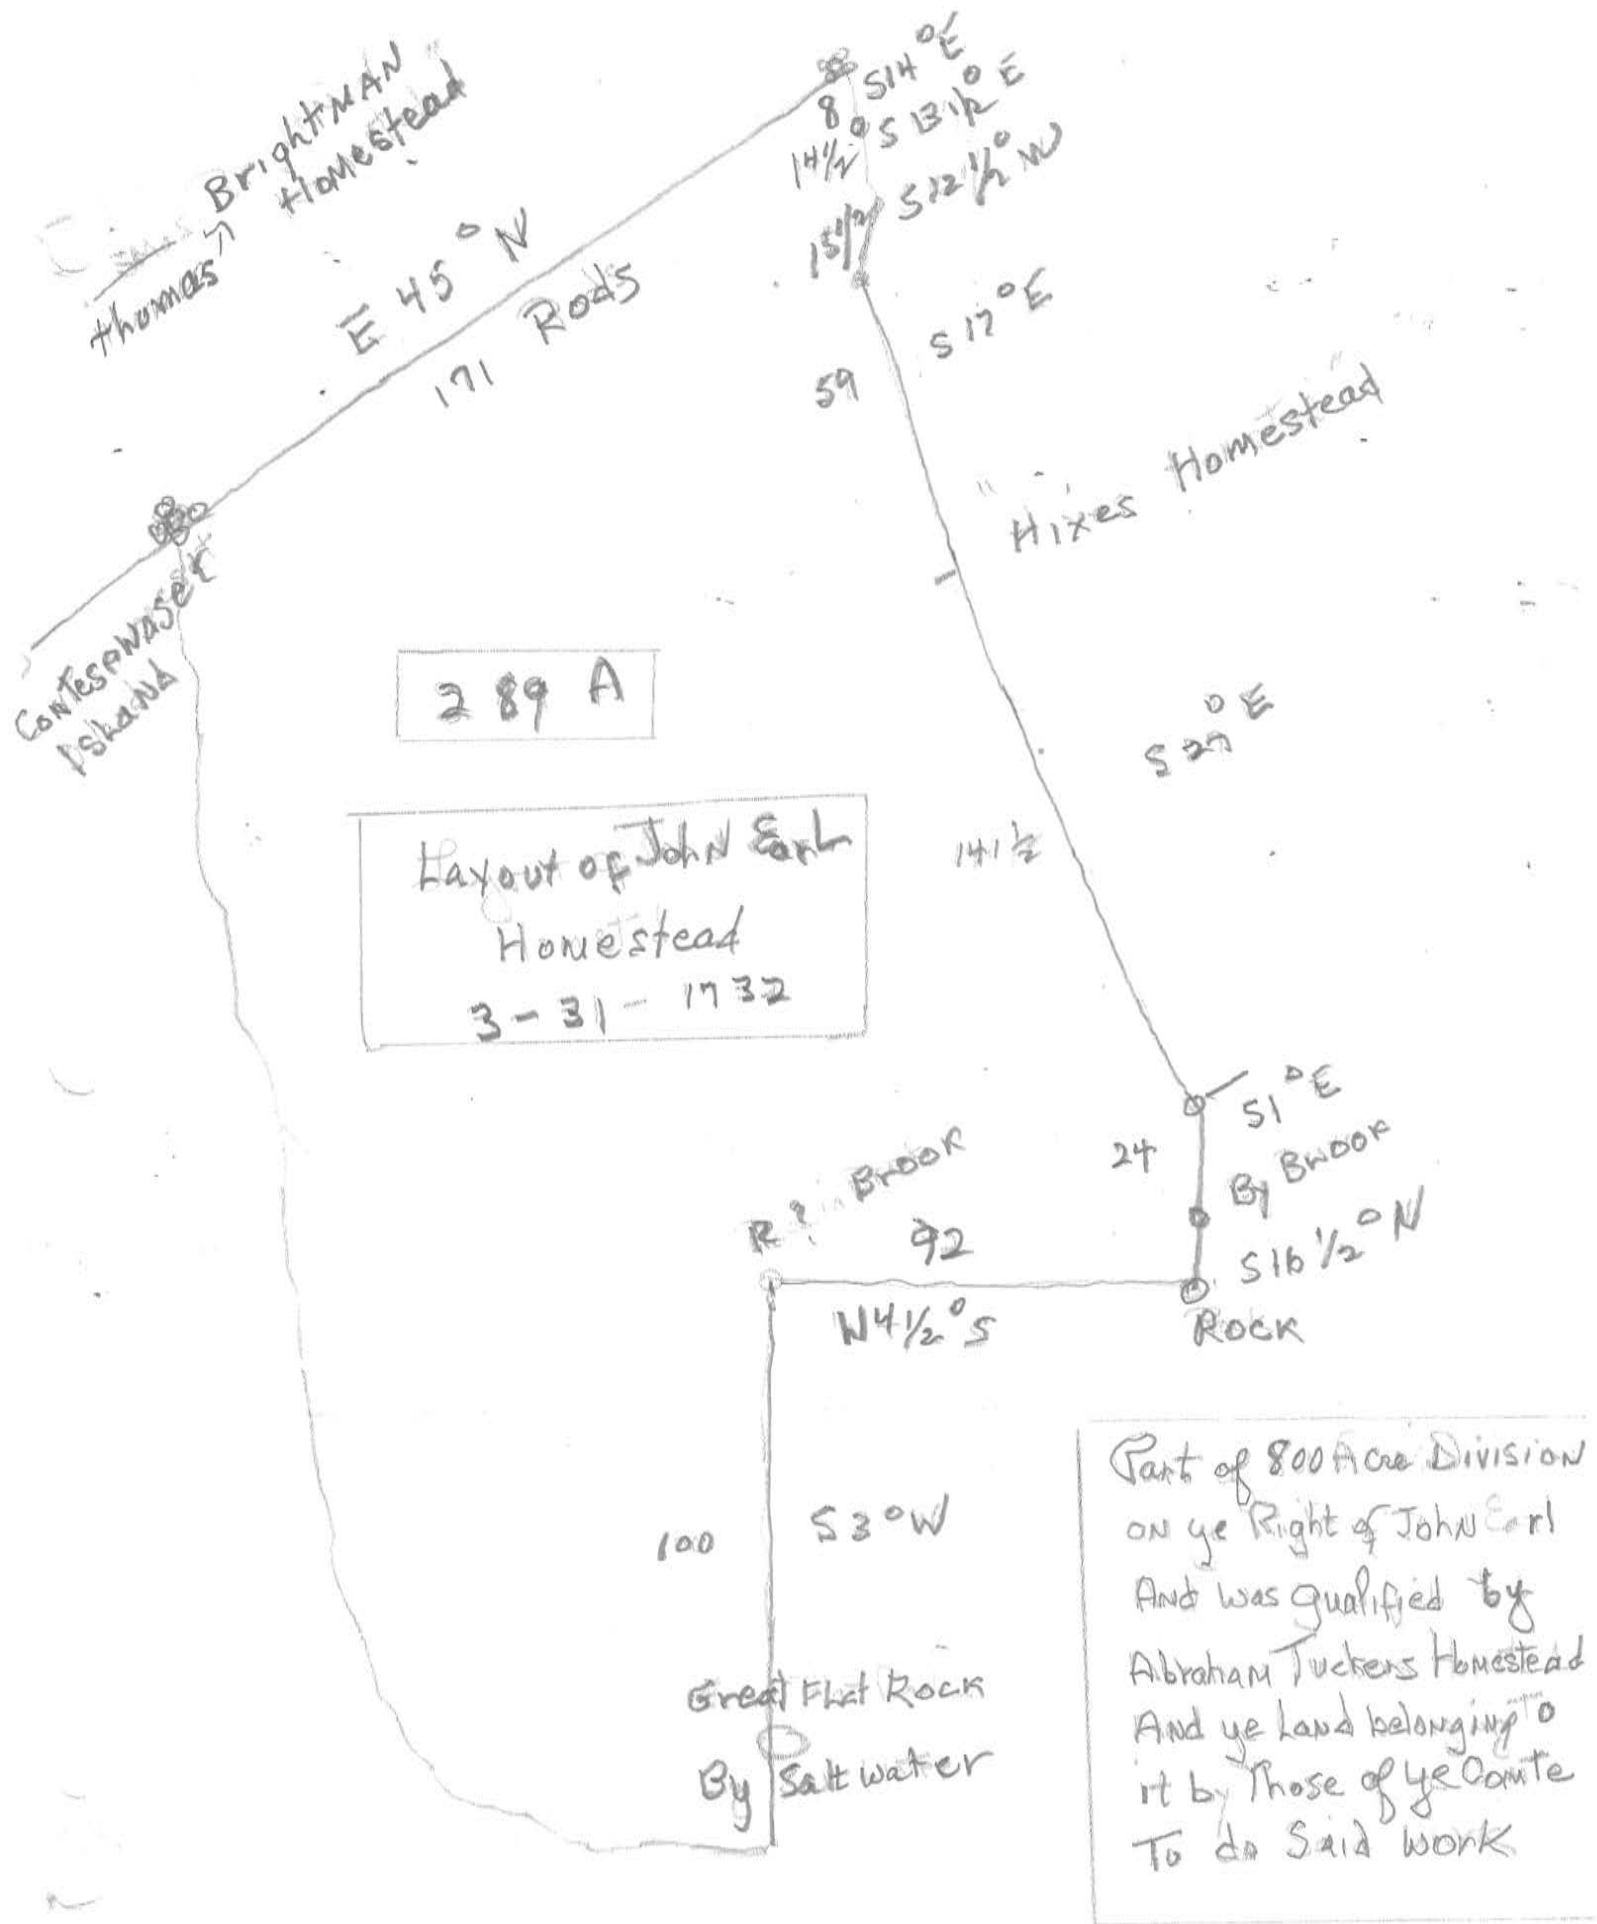 BrightMAN
Homestead
thomas
E 45° N
171 Rods
8 S14°E
14½ S 13½°E
15½ S12½°W
59 S17°E
Hixes Homestead
ContesawaseT
IshaNd
2 89 A
S 27°E
141½
Layout of JohN EarL
Homestead
3-31-1732
S1°E
24
By Brook
S16½°N
Rock
R ? Brook
92
W4½°S
100
S3°W
Great Flat Rock
By Salt water
Part of 800 Acre DivisioN
oN ye Right of JohN Earl
And was Qualified by
Abraham Tuckers Homestead
And ye Land belonging To
it by Those of ye Comte
To do Said work